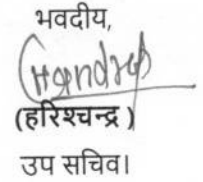 भवदीय,
(हरिश्चन्द्र )
उप सचिव।